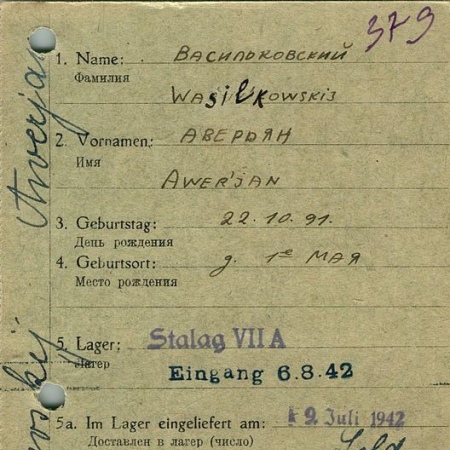 379
1. Name: ВАСИЛЬКОВСКИЙ
Фамилия
WASILKOWSKIJ
2. Vornamen: АВЕРЬЯН
Имя
AWER'JAN
3. Geburtstag: 22.10.91.
День рождения
4. Geburtsort: д. 1е МАЯ
Место рождения
5. Lager: Stalag VII A
Лагер
Eingang 6.8.42
5a. Im Lager eingeliefert am: 2 Juli 1942
Доставлен в лагер (число)
Awerjan